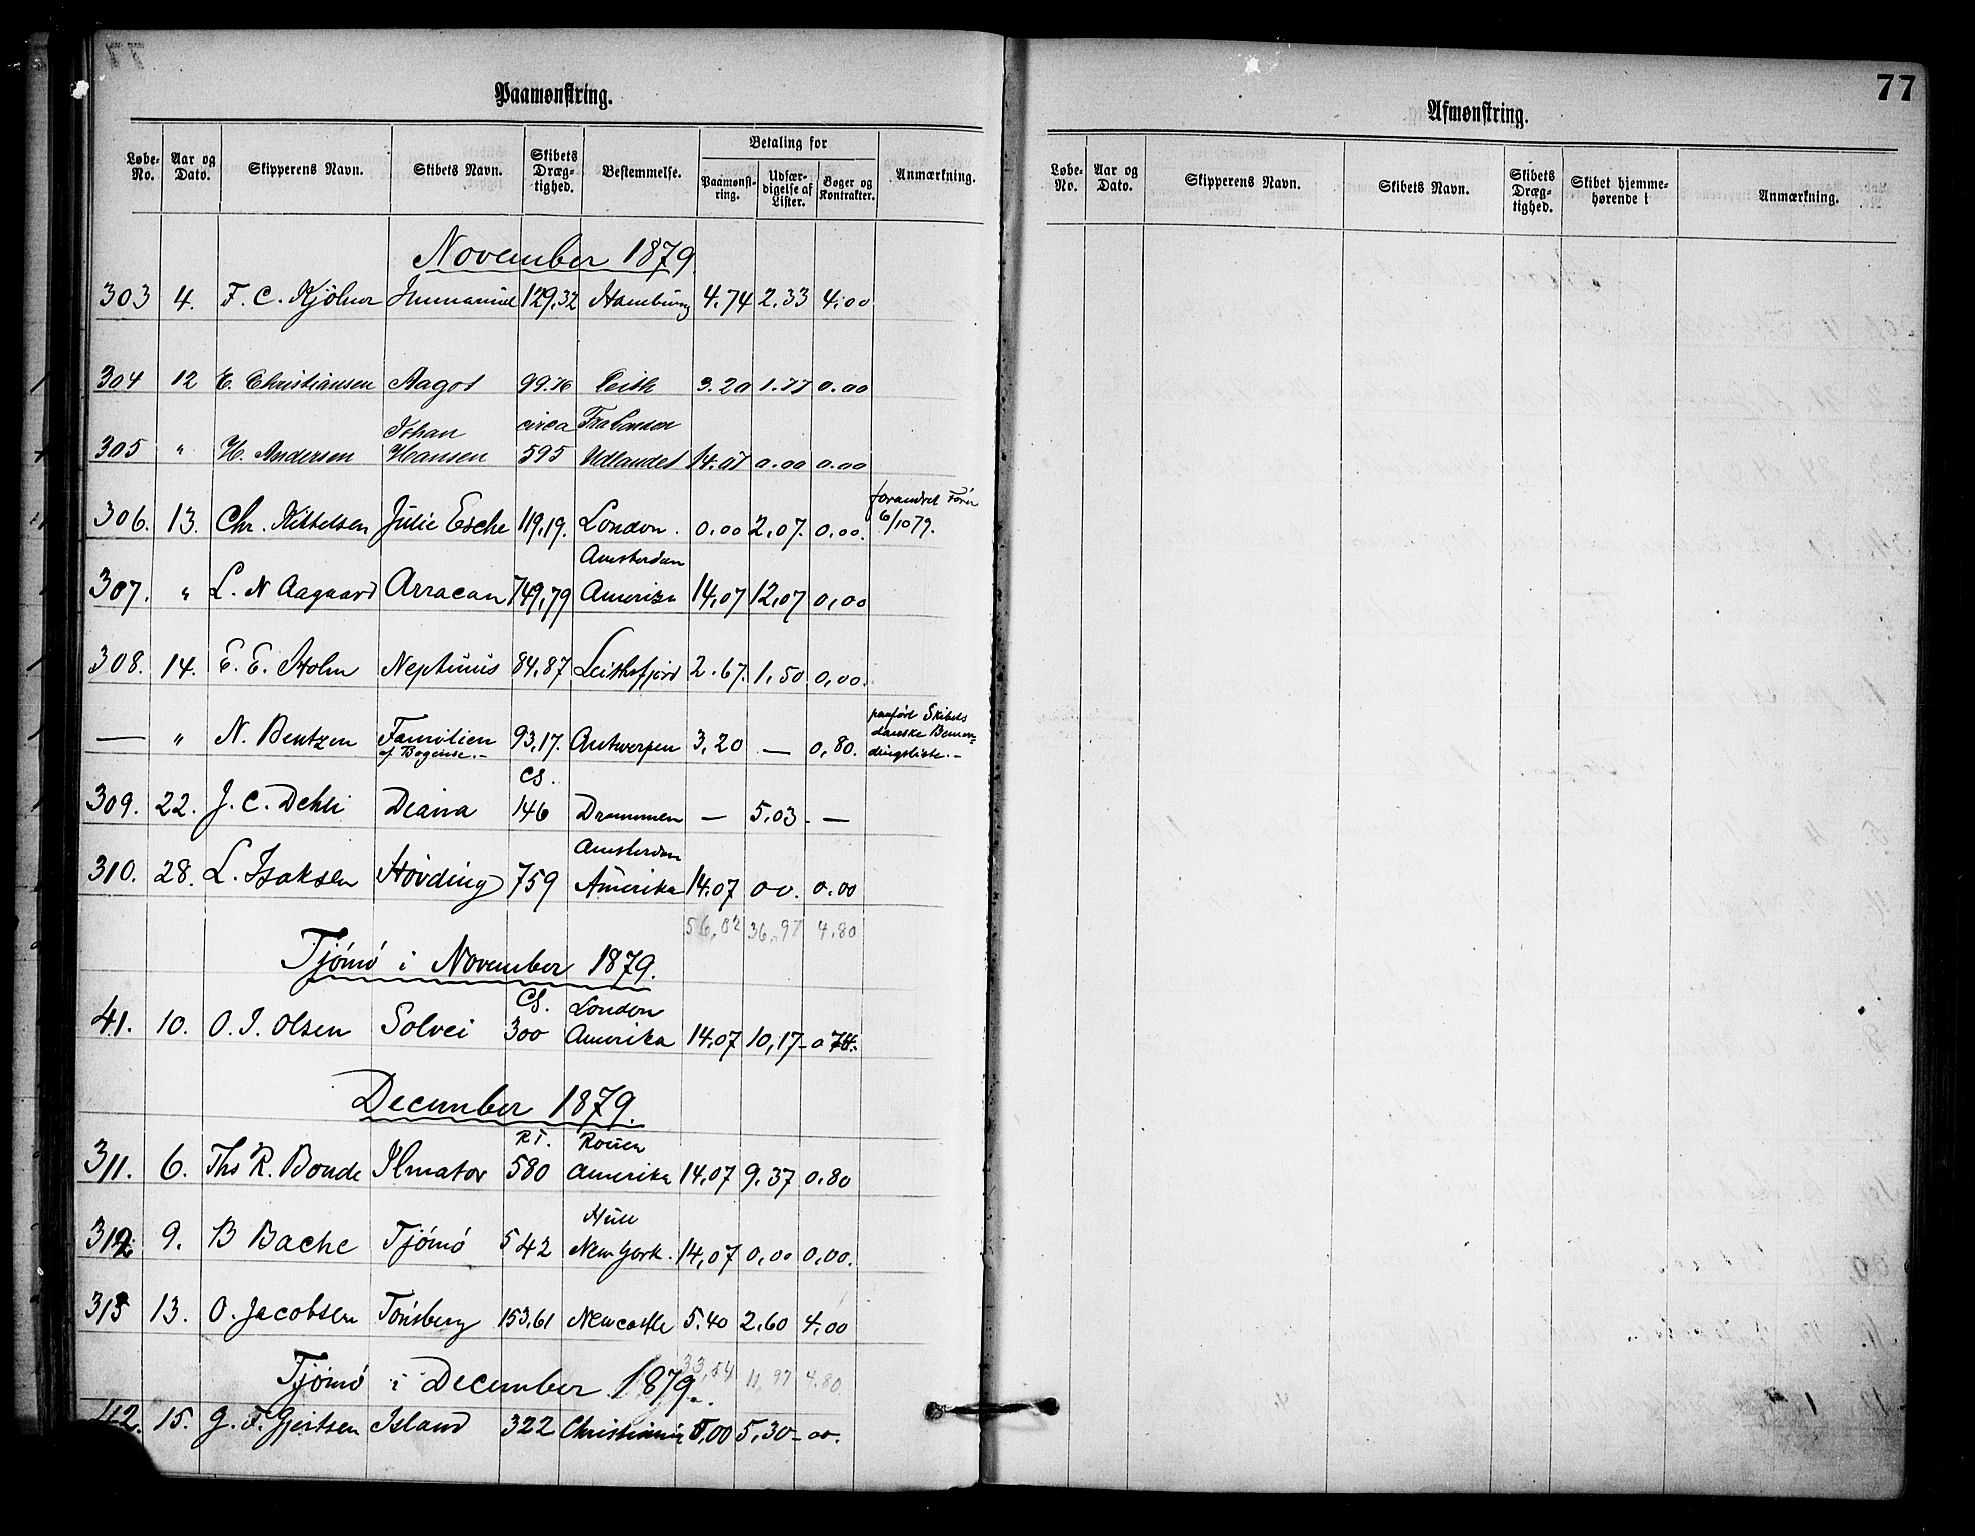 77
Paamønstring.
Løbe-No. | Aar og Dato. | Skipperens Navn. | Skibets Navn. | Skibets Dræg-tighed. | Bestemmelse. | Betaling for | Paamønst-ring. | Udfær-digelse af Lister. | Bøger og Kontrakter. | Anmærkning.
November 1879.
303 4. F. C. Kjölner Immanuel 129,32 Hamburg 4.74 2.33 4.00
304 12 E. Christiansen Aagot 99.76 Leith 3.20 1.77 0.00
Johan circa Fra
305 " H. Andersen Hansen 595 Udlandet 14.07 0.00 0.00
forandret Fører
306. 13. Chr. Kittelsen Julie Esche 119,19. London. 0.00 2,07. 0,00. 6/10 79.
Amsterdam
307. " L. N Aagaard Arracan 749,79 Amerika 14,07 12,07 0,00
308. 14. E. E. Holm Neptunus 84,87 Leithsfjord 2.67. 1,50 0,00.
paaført Skibets
— " N. Bentzen Familien 93,17. Antwerpen 3,20 — 0,80. danske Beman-
af Bogense.- dingsliste.-
Cs.
309. 22. J. C. Dehli Diana 146 Drammen — 5,03 - —
Amsterdam
310. 28. L. Isaksen Høvding 759 Amerika 14.07 00. 0.00
56,02 36,97 4.80
Tjömö i November 1879.
Cs. London
41. 10. O. J. Olsen Solvei 300 Amerika 14,07 10,17- 0 74.
December 1879.
R T. Rouen
311. 6. Ths R. Bonde Ilmator 580 Amerika 14,07 9.37 0.80
Hull
312. 9. B Bache Tjömö 542 New York. 14,07 0,00 0,00.
313 13. O. Jacobsen Tönsberg 153,61 Newcastle 5.40 2,60 4,00
33,54 11,97 4.80.
Tjömö i December 1879.
42. 15. G. F. Gjertsen Island 322 Christiania 5,00 5,30- 00.
77
Afmønstring.
Løbe-No. | Aar og Dato. | Skipperens Navn. | Skibets Navn. | Skibets Dræg-tighed. | Skibet hjemme-hørende i | Anmærkning.